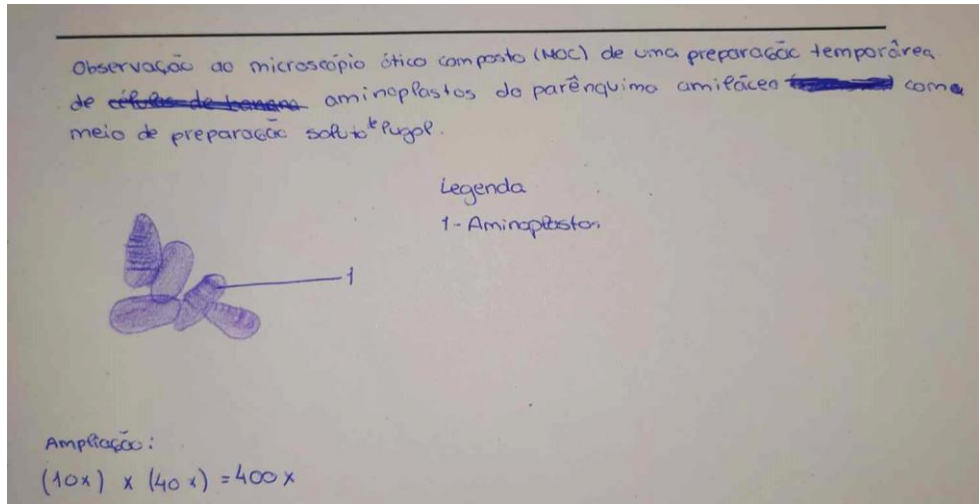 Observação ao microscópio ótico composto (MOC) de uma preparação temporárea
de células de banana aminoplastos do parênquima amiláceo como
meio de preparação soluto lugol.
Legenda
1 - Aminoplastos
1
Ampliação:
(10x) x (40x) = 400x